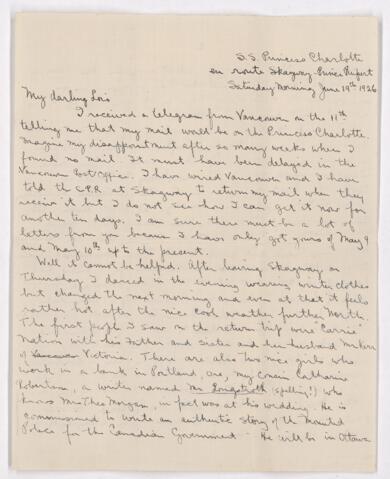 S.S. Princess Charlotte
en route Skagway-Prince Rupert
Saturday Morning, June 19th 1926
My darling Lois
I received a telegram from Vancouver on the 11th
telling me that my mail would be on the Princess Charlotte.
Imagine my disappointment after so many weeks when I
found no mail. It must have been delayed in the
Vancouver Post Office. I have wired Vancouver and I have
told the C.P.R. at Skagway to return my mail when they
receive it but I do not see how I can get it now for
another ten days. I am sure there must be a lot of
letters from you because I have only got yours of May 9
and May 10th up to the present.
Well it cannot be helped. After leaving Skagway on
Thursday I danced in the evening wearing winter clothes
but changed the next morning and even at that it feels
rather hot after the nice cool weather further North.
The first people I saw on the return trip were "Carrie"
Nation with his Father and Sister and her husband
of Victoria. There are also two nice girls who
work in a bank in Portland, Ore, my cousin Catharine
Robertson, a writer named Mr Longstreth (spelling!) who
knows Mr Theo Morgan, in fact was at his wedding. He is
commissioned to write an authentic story of the Mounted
Police for the Canadian Government - He will be in Ottawa